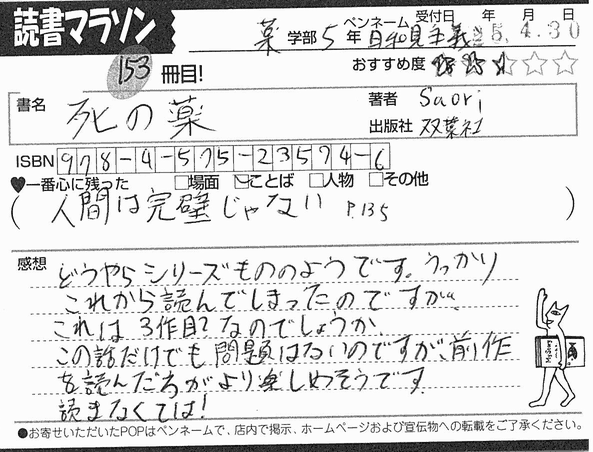 読書マラソン
薬 学部 5 年 ペンネーム 日和見主義 受付日 25.4.30 年 月 日
153 冊目!
おすすめ度
書名 死の薬
著者 Saori
出版社 双葉社
ISBN 978-4-575-23574-6
♥一番心に残った □場面 ☑ことば □人物 □その他
(人間は完璧じゃない P.135)
感想
どうやらシリーズもののようです。うっかり
これから読んでしまったのですが、
これは3作目?なのでしょうか。
この話だけでも問題はないのですが、前作
を読んだ方がより楽しめそうです。
読まなくては!
●お寄せいただいたPOPはペンネームで、店内で掲示、ホームページおよび宣伝物への転載をご了承ください。